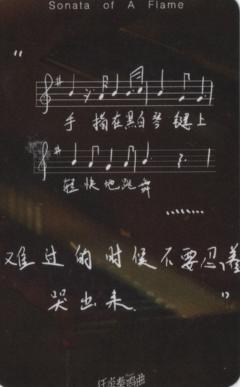 Sonata of A Flame
“
手 指在黑白琴 键上
轻 快地跳舞
........
难过的时候不要忍着
哭出来. ”
奏鸣曲